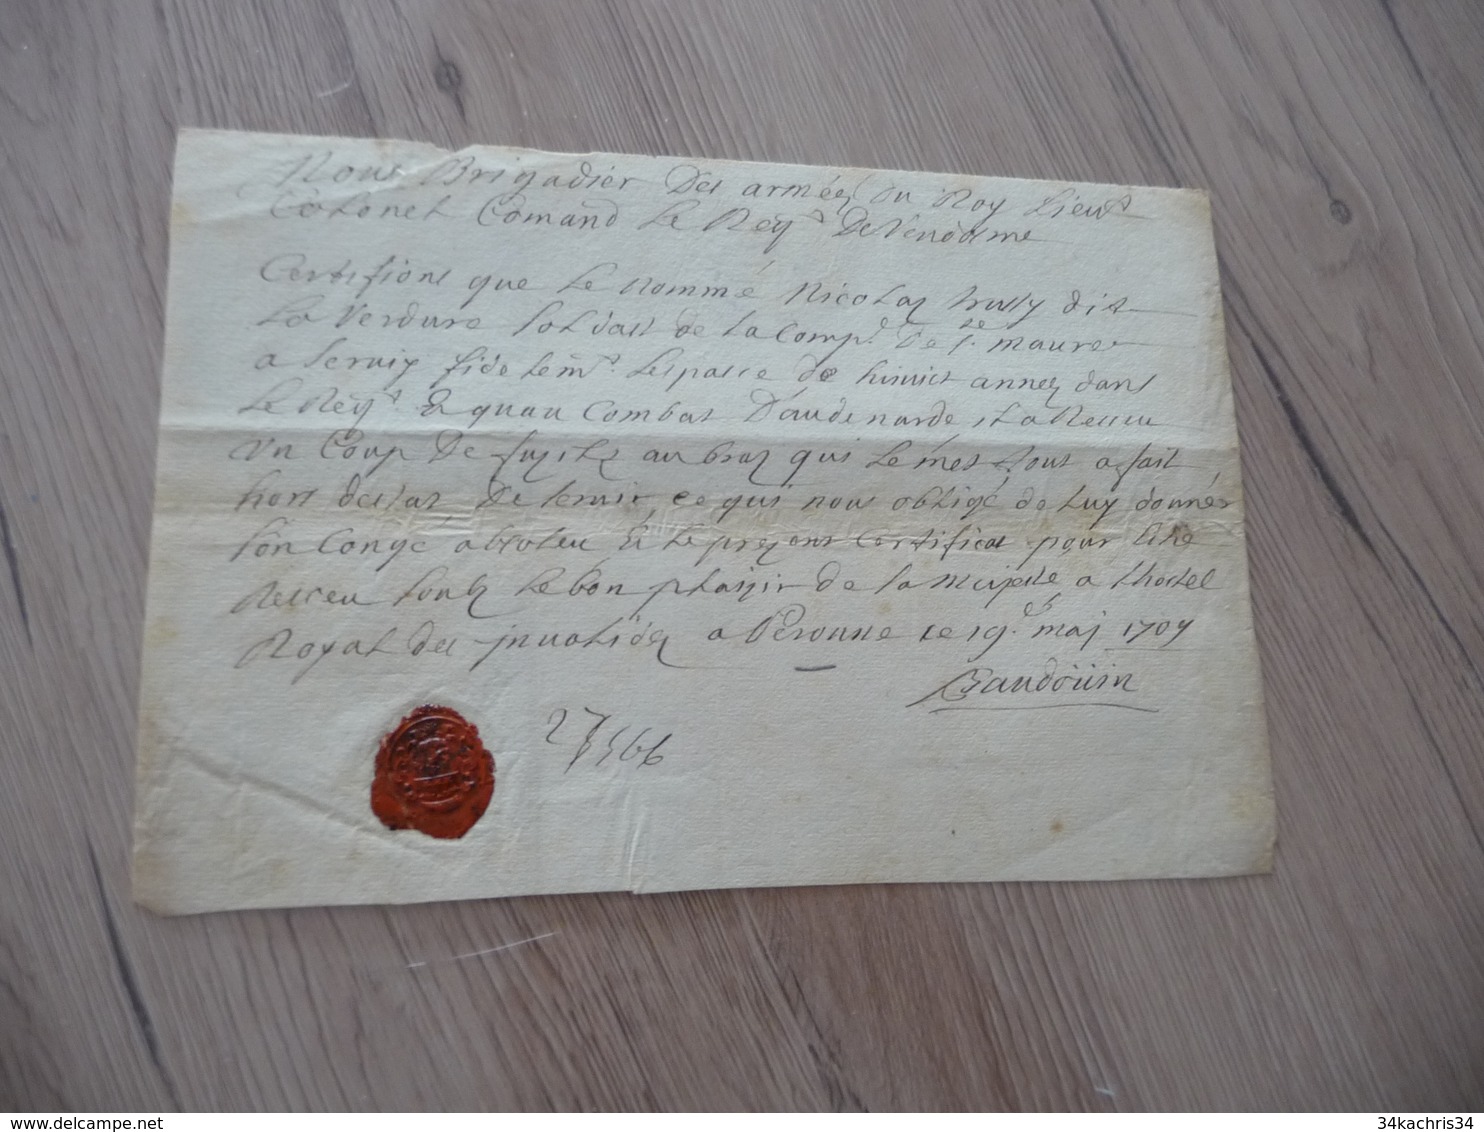 Nous Brigadier Des armées du Roy Lieut
Colonel Comand Le Reg.t De Vendosme
Certifions que Le nommé Nicolas dit
La Verdure soldat de La Comp.e De s.te maure
a servix fidelem.t Lespasse de huuict annez dans
Le Reg.t Et quau Combat D'audenarde il a Receu
Un Coup De fuzils au bras qui Le met tout afait
hors destat De servir ce qui nous obligé de Luy donner
son Congé absoleu Et Le prezent Certificat pour Estre
Receu soubz Le bon plaizir de sa Majeste a Lhostel
Royal des jnvalidez a Peronne ce 19.e maj 1709
Baudoüin
27566
www.delcampe.net
34kachris34